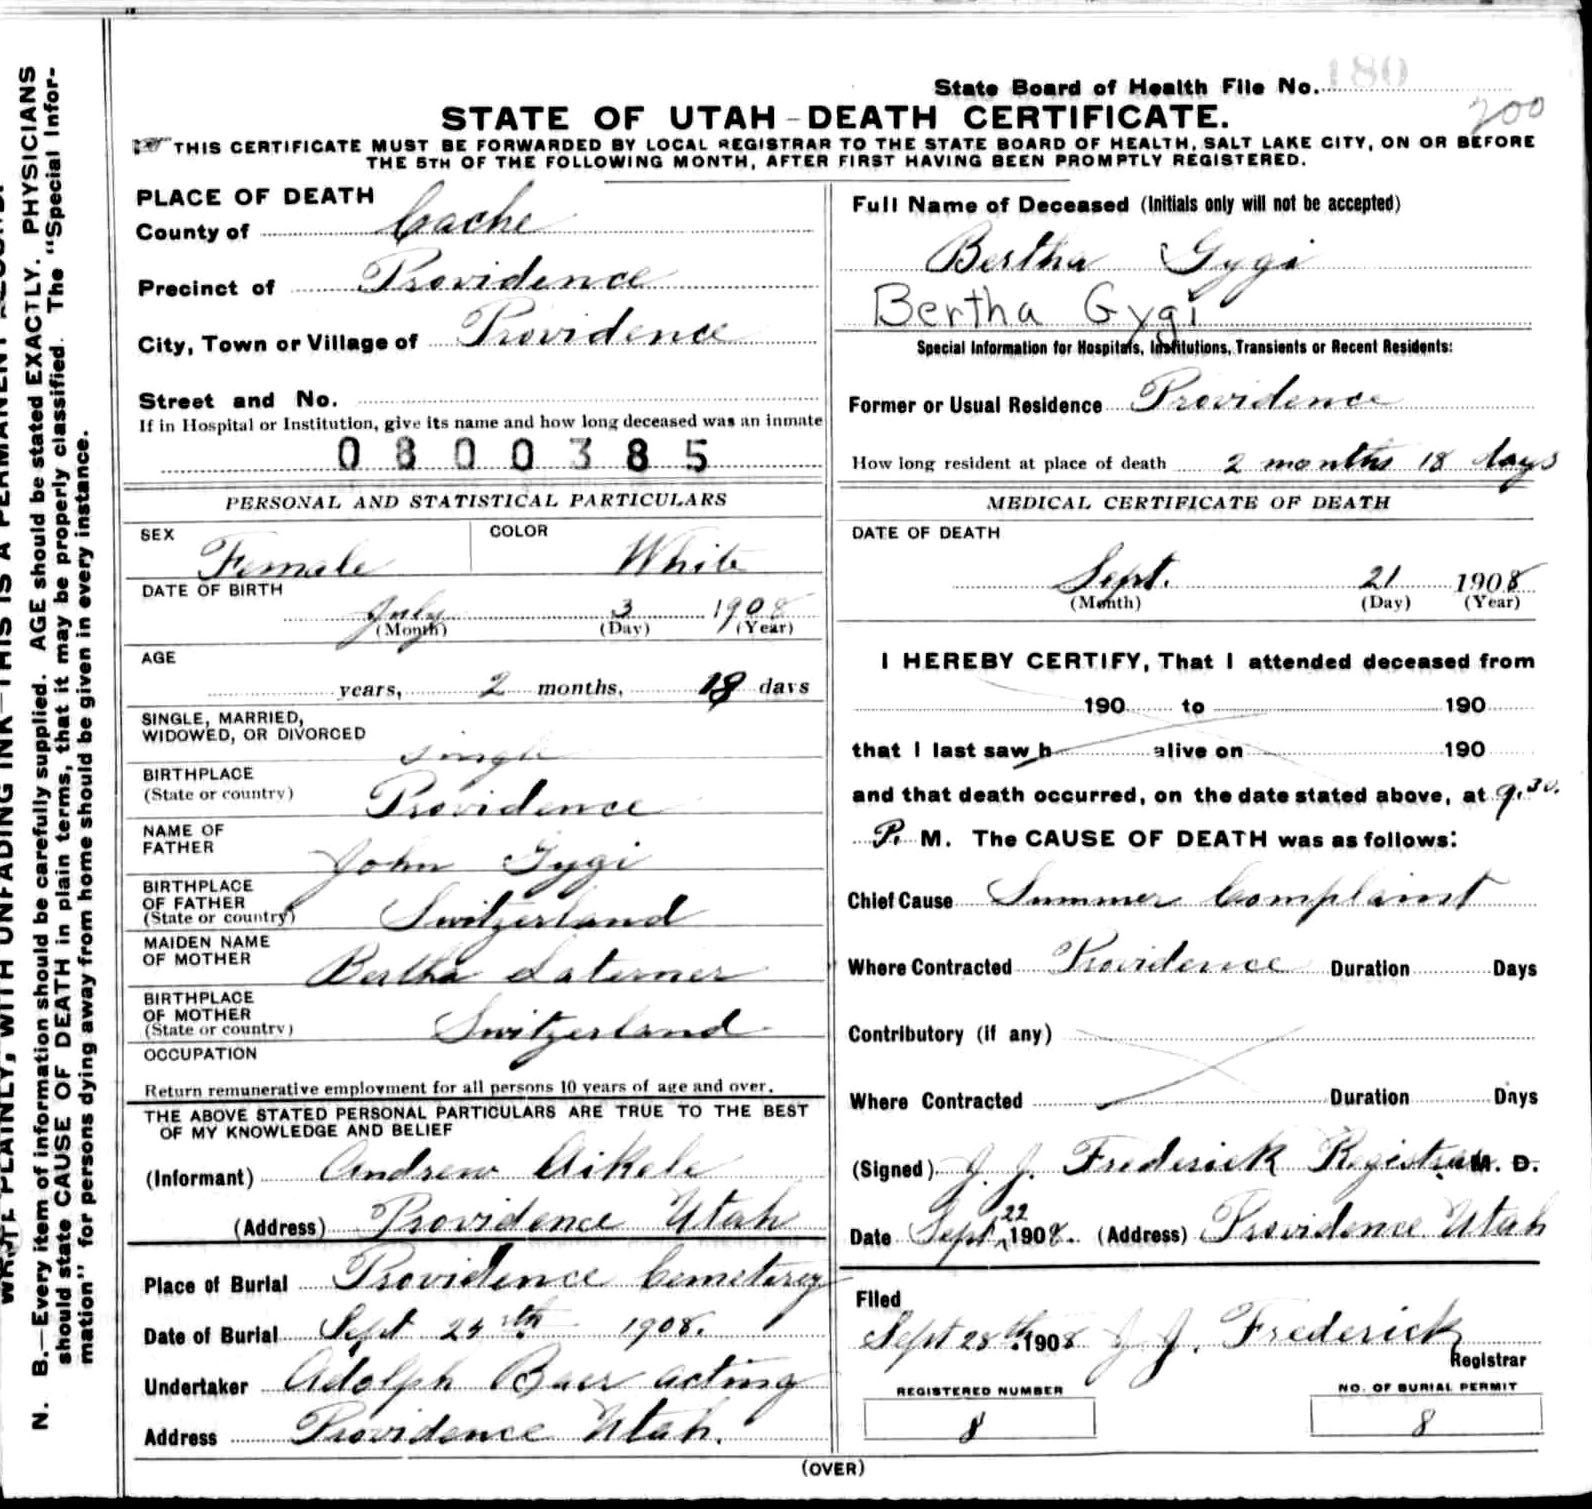 State Board of Health File No. 180
200
STATE OF UTAH - DEATH CERTIFICATE.
THIS CERTIFICATE MUST BE FORWARDED BY LOCAL REGISTRAR TO THE STATE BOARD OF HEALTH, SALT LAKE CITY, ON OR BEFORE
THE 5TH OF THE FOLLOWING MONTH, AFTER FIRST HAVING BEEN PROMPTLY REGISTERED.
PLACE OF DEATH
County of Cache
Precinct of Providence
City, Town or Village of Providence
Street and No.
If in Hospital or Institution, give its name and how long deceased was an inmate
0800385
PERSONAL AND STATISTICAL PARTICULARS
SEX Female COLOR White
DATE OF BIRTH
July 3 1908
(Month) (Day) (Year)
AGE
years, 2 months, 18 days
SINGLE, MARRIED,
WIDOWED, OR DIVORCED single
BIRTHPLACE
(State or country) Providence
NAME OF
FATHER John Gygi
BIRTHPLACE
OF FATHER
(State or country) Switzerland
MAIDEN NAME
OF MOTHER Bertha Laterner
BIRTHPLACE
OF MOTHER
(State or country) Switzerland
OCCUPATION
Return remunerative employment for all persons 10 years of age and over.
THE ABOVE STATED PERSONAL PARTICULARS ARE TRUE TO THE BEST
OF MY KNOWLEDGE AND BELIEF
(Informant) Andrew Aikele
(Address) Providence Utah
Place of Burial Providence Cemeterey
Date of Burial Sept 1908.
Undertaker Adolph Baer acting
Address Providence Utah.
Full Name of Deceased (Initials only will not be accepted)
Bertha Gygi
Bertha Gygi
Special Information for Hospitals, Institutions, Transients or Recent Residents:
Former or Usual Residence Providence
How long resident at place of death 2 months 18 days
MEDICAL CERTIFICATE OF DEATH
DATE OF DEATH
Sept. 21 1908
(Month) (Day) (Year)
I HEREBY CERTIFY, That I attended deceased from
190 to 190
that I last saw h alive on 190
and that death occurred, on the date stated above, at 9.30.
P. M. The CAUSE OF DEATH was as follows:
Chief Cause Summer Complaint
Where Contracted Providence Duration Days
Contributory (if any)
Where Contracted Duration Days
(Signed) J. J. Frederick Registrar M. D.
Date Sept 22 1908. (Address) Providence Utah
Filed
Sept 28th 1908 J J. Frederick
Registrar
REGISTERED NUMBER
8
NO. OF BURIAL PERMIT
8
(OVER)
WRITE PLAINLY, WITH UNFADING INK—THIS IS A PERMANENT RECORD.
N. B.—Every item of information should be carefully supplied. AGE should be stated EXACTLY. PHYSICIANS
should state CAUSE OF DEATH in plain terms, that it may be properly classified. The "Special Infor-
mation" for persons dying away from home should be given in every instance.